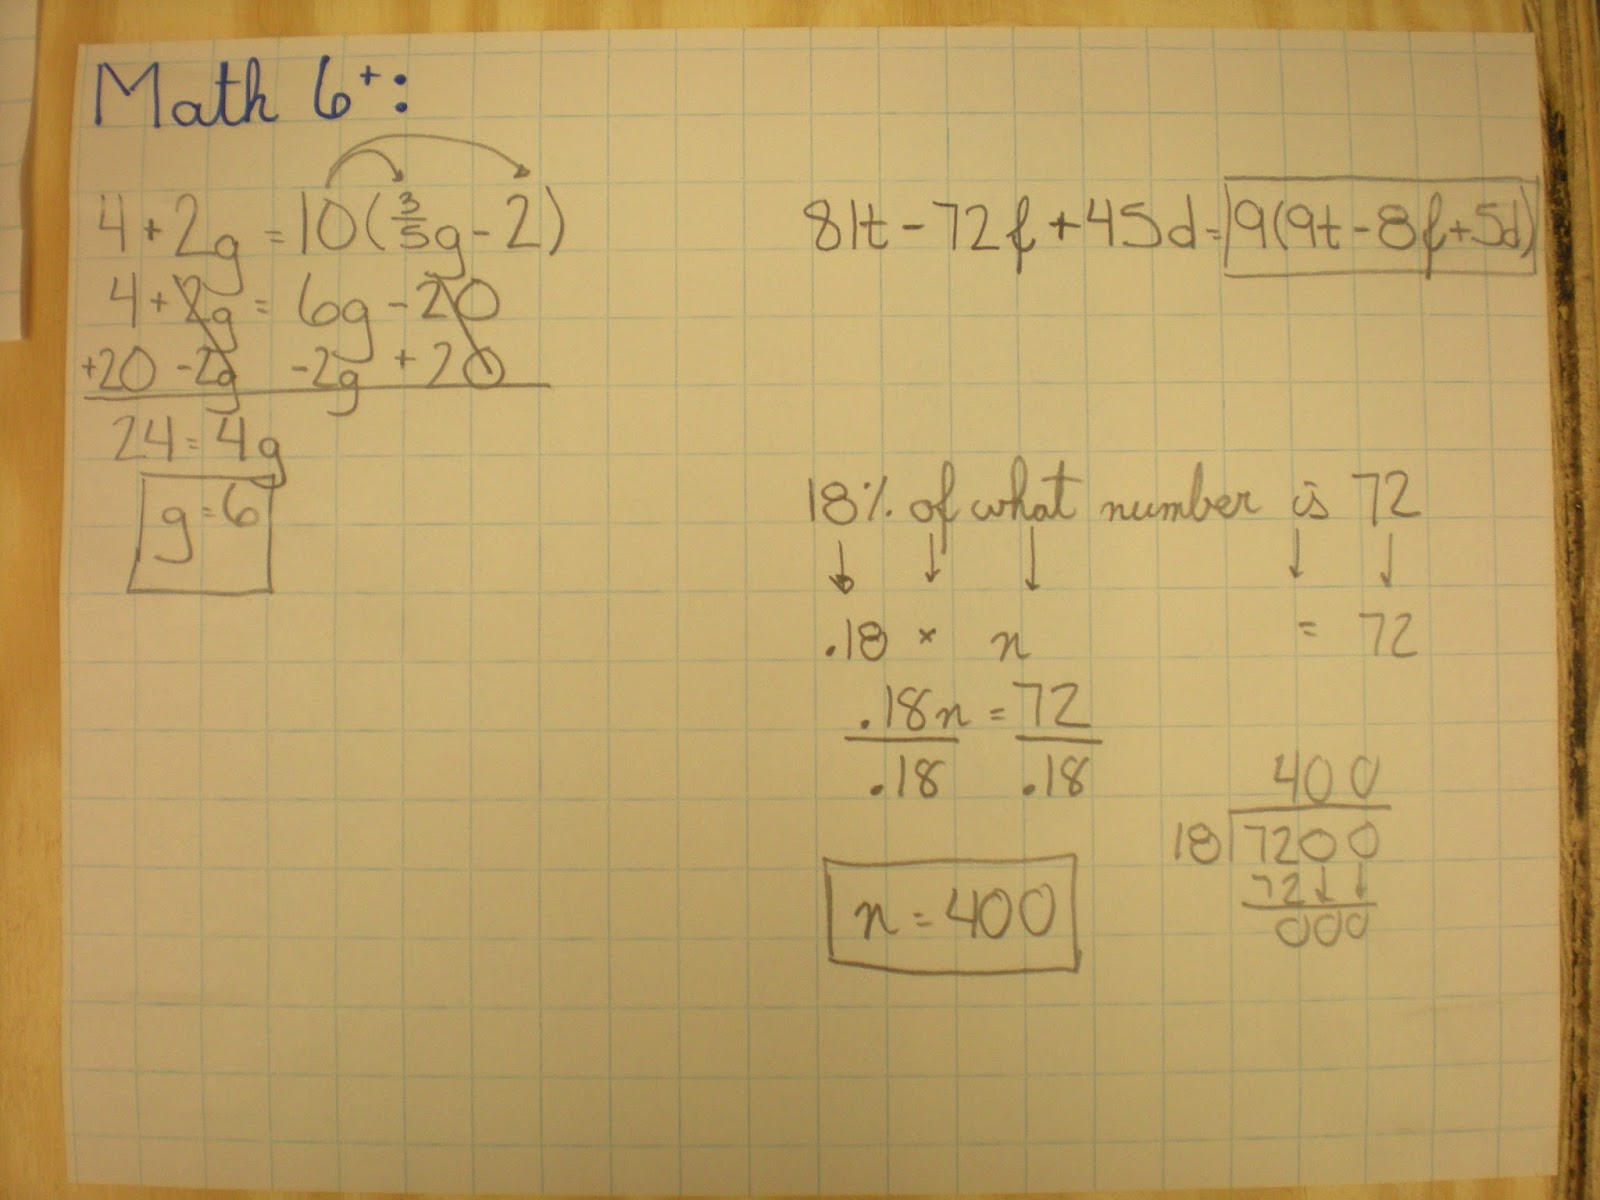 Math 6+:
4 + 2g = 10(3/5g - 2)
4 + 2g = 6g - 20
+20 - 2g - 2g + 20
24 = 4g
g = 6
81t - 72f + 45d = 9(9t - 8f + 5d)
18% of what number is 72
.18 × n = 72
.18n = 72
.18 .18
n = 400
400
18 7200
72
000